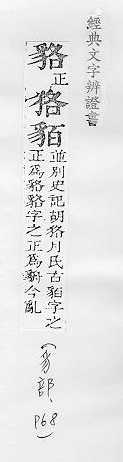 經典文字辨證書
貉正狢貊並別史記胡貉月氏古貊字之
正為貉貉字之正為貈今亂
(豸部, P68)